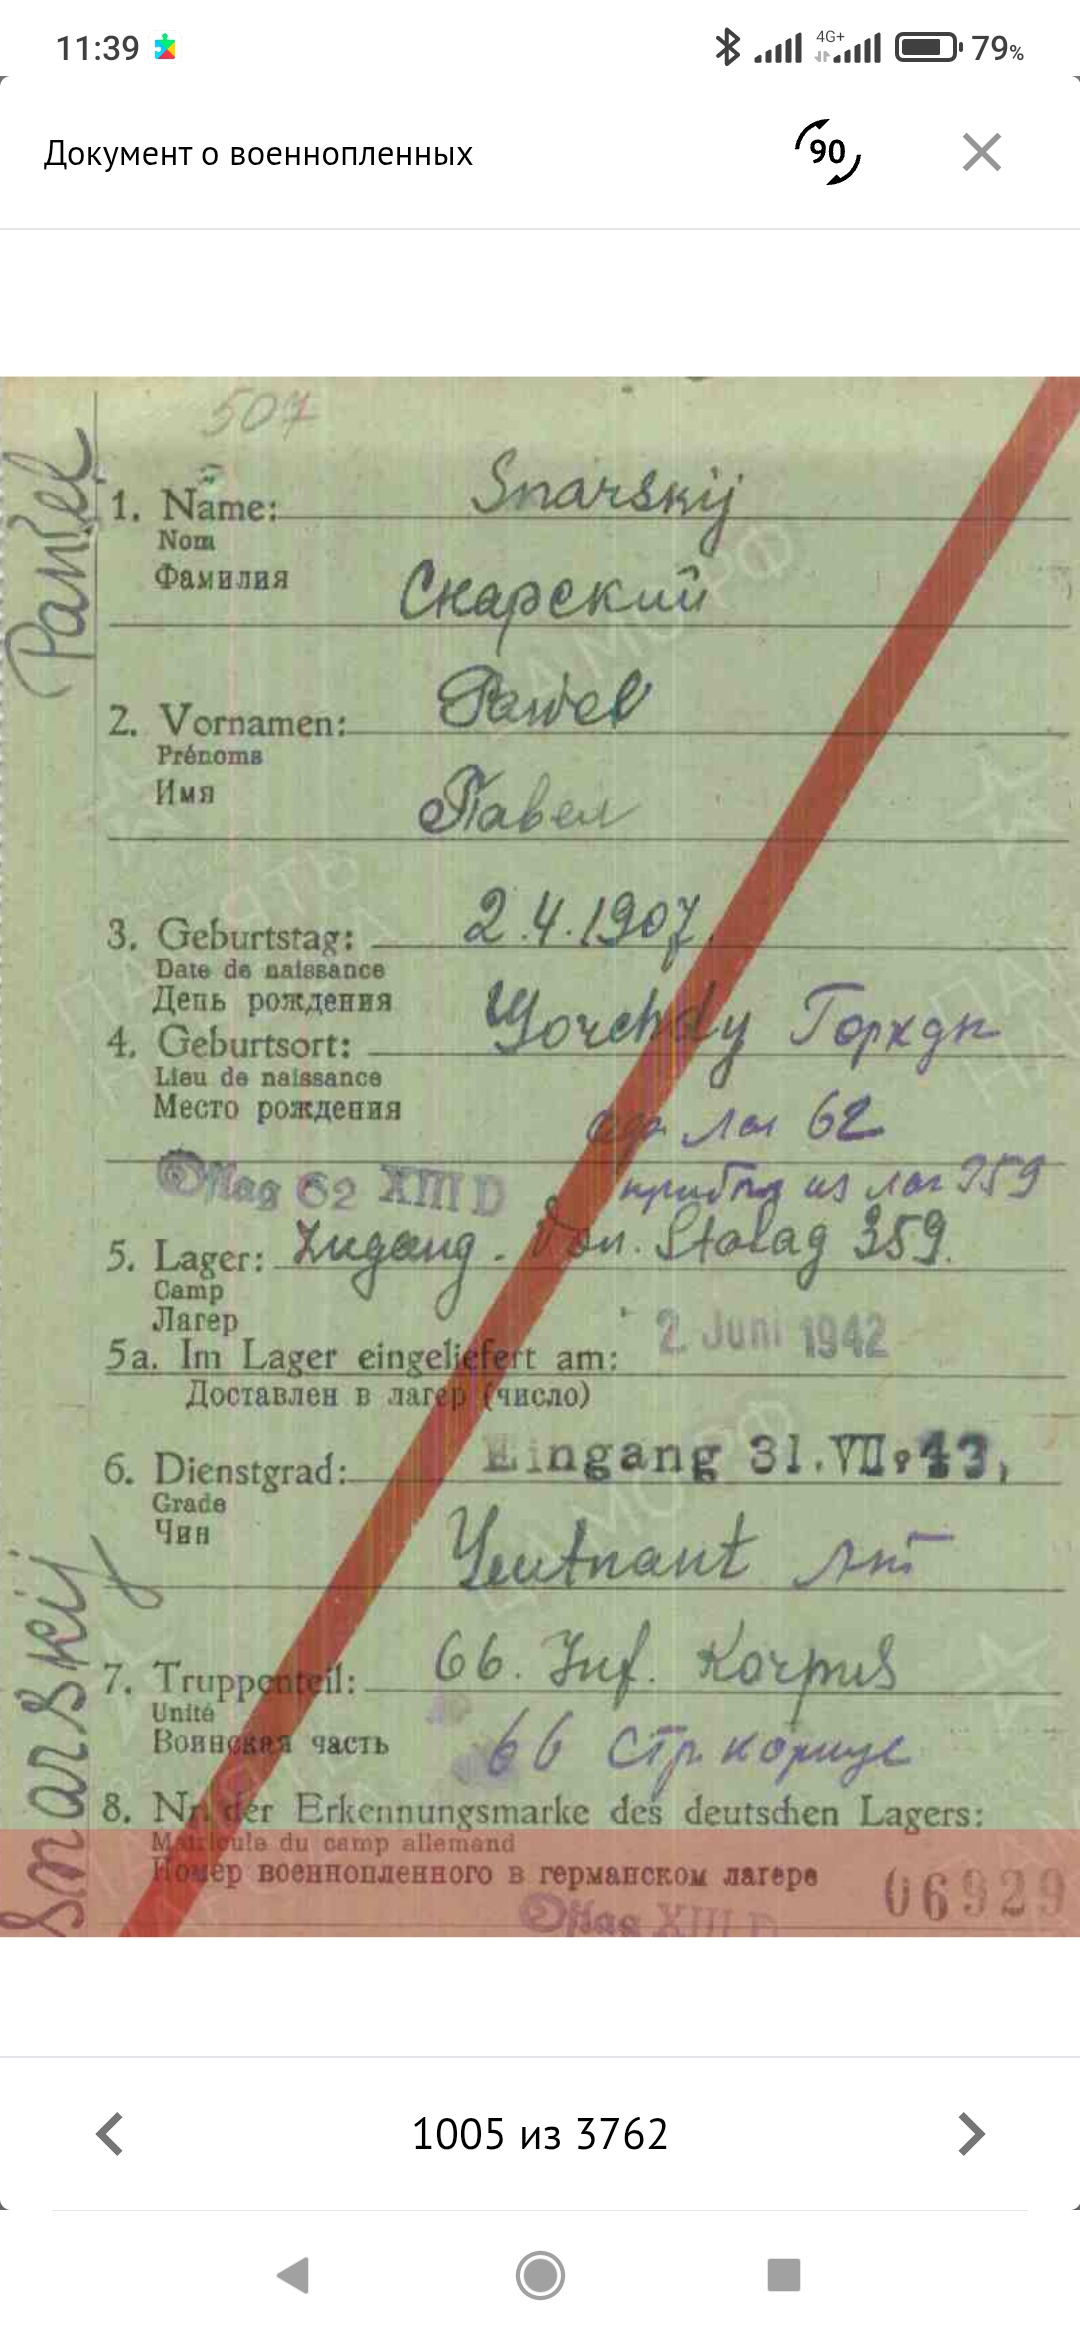 11:39 4G+ 79%
Документ о военнопленных
90
507
Pawel
1. Name: Snarskij
Nom
Фамилия
Снарский
2. Vornamen: Pawel
Prénoms
Имя
Павел
3. Geburtstag: 2.4.1907.
Date de naissance
День рождения
4. Geburtsort:
Lieu de naissance
Место рождения
лаг 62
Oflag 62 XIII D
прибыл из лаг 359
5. Lager: Zugang. Von. Stalag 359.
Camp
Лагерь
2. Juni 1942
5a. Im Lager eingeliefert am:
Доставлен в лагерь (число)
6. Dienstgrad: Eingang 31.VII.43,
Grade
Чин
Leutnant лт
Snarskij
7. Truppenteil: 66. Inf. Korpus
Unité
Воинская часть
66 Стр. корпус
8. Nr. der Erkennungsmarke des deutschen Lagers:
Matricule du camp allemand
Номер военнопленного в германском лагере 06929
Oflag XIII D
ПАМЯТЬ НАРОДА
ЦАМО РФ
1005 из 3762